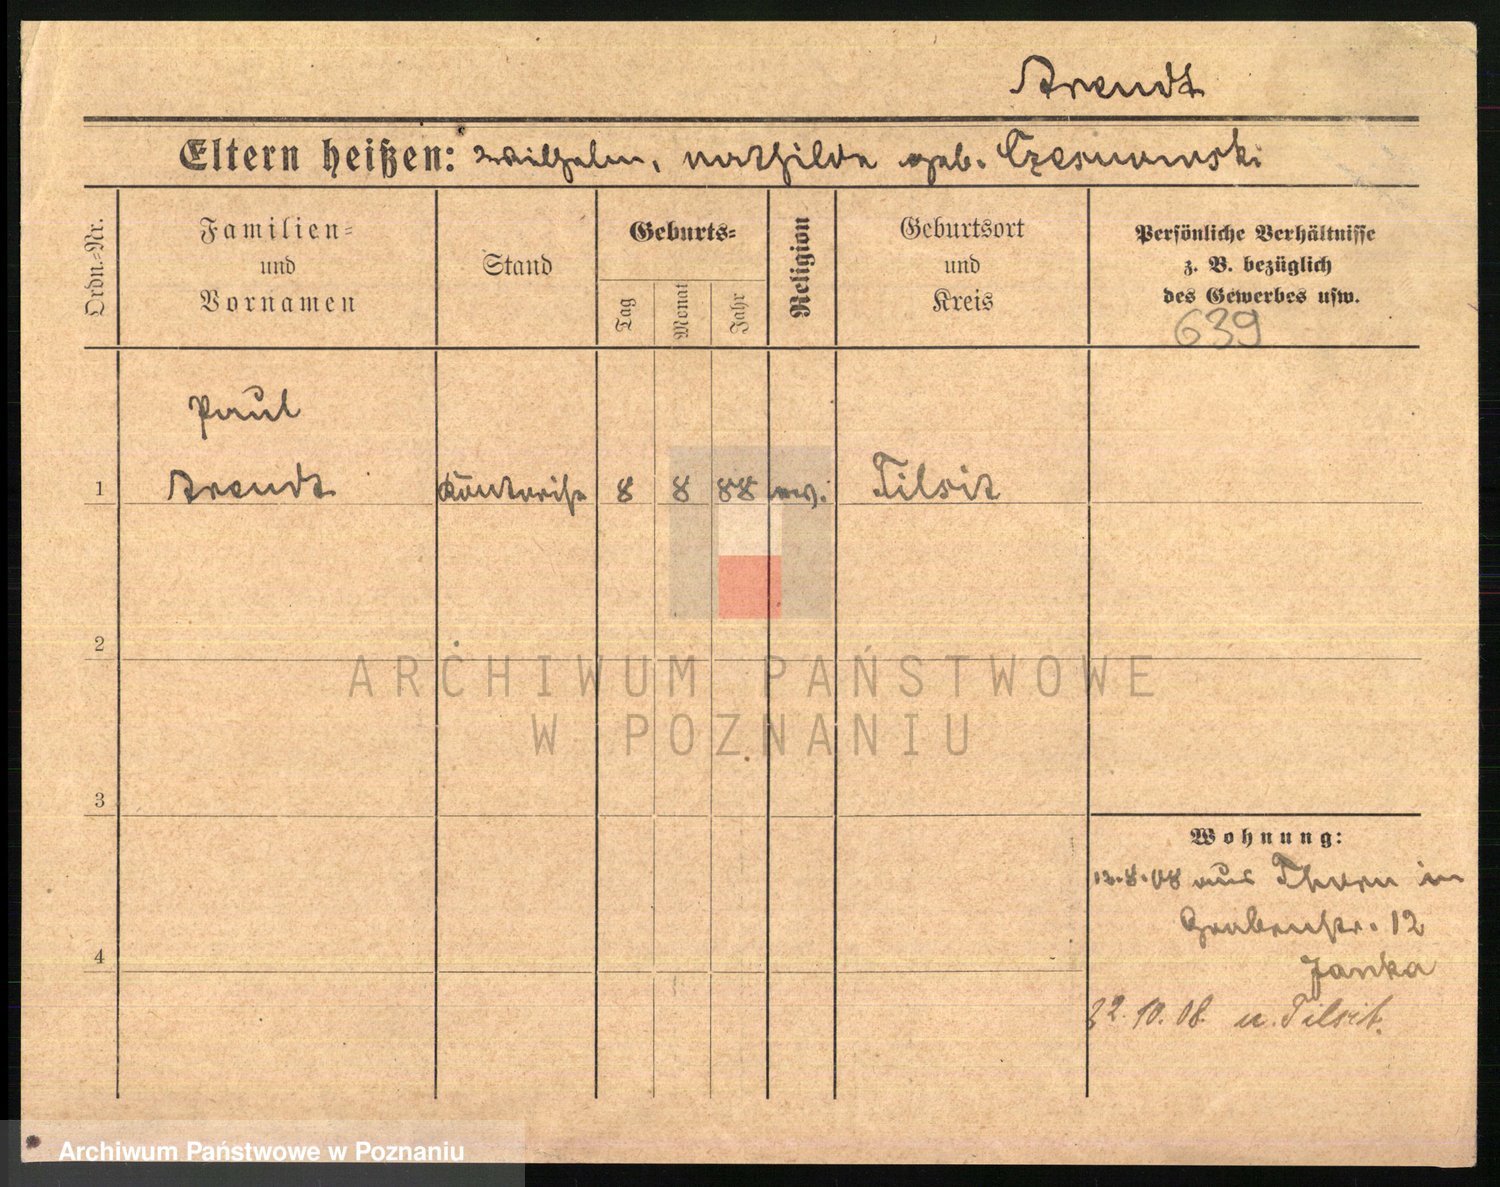 Arendt
Eltern heißen: Wilhelm, Mathilde geb. Czesnowski
Ordn.-Nr.
Familien-
und
Vornamen
Stand
Geburts-
Tag
Monat
Jahr
Religion
Geburtsort
und
Kreis
Persönliche Verhältnisse
z. B. bezüglich
des Gewerbes usw.
639
Paul
1 Arendt 8 8 88 Tilsit
2
3
4
Wohnung:
12.8.08 aus Thorn in
Grabenstr. 12
Janka
22.10.08. n. Tilsit.
ARCHIWUM PAŃSTWOWE
W POZNANIU
Archiwum Państwowe w Poznaniu